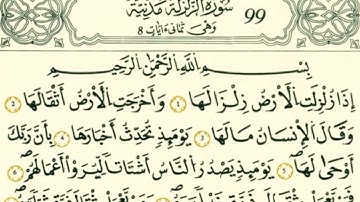 سُورَةُ الزَّلْزَلَةِ مَدَنِيَّةٌ 99
وَهِيَ ثَمَانِي ءَايَاتٍ 8
بِسْمِ اللَّهِ الرَّحْمَٰنِ الرَّحِيمِ
إِذَا زُلْزِلَتِ الْأَرْضُ زِلْزَالَهَا 1 وَأَخْرَجَتِ الْأَرْضُ أَثْقَالَهَا 2
وَقَالَ الْإِنسَانُ مَا لَهَا 3 يَوْمَئِذٍ تُحَدِّثُ أَخْبَارَهَا 4 بِأَنَّ رَبَّكَ
أَوْحَىٰ لَهَا 5 يَوْمَئِذٍ يَصْدُرُ النَّاسُ أَشْتَاتًا لِّيُرَوْا أَعْمَالَهُمْ 6
فَمَن يَعْمَلْ مِثْقَالَ ذَرَّةٍ